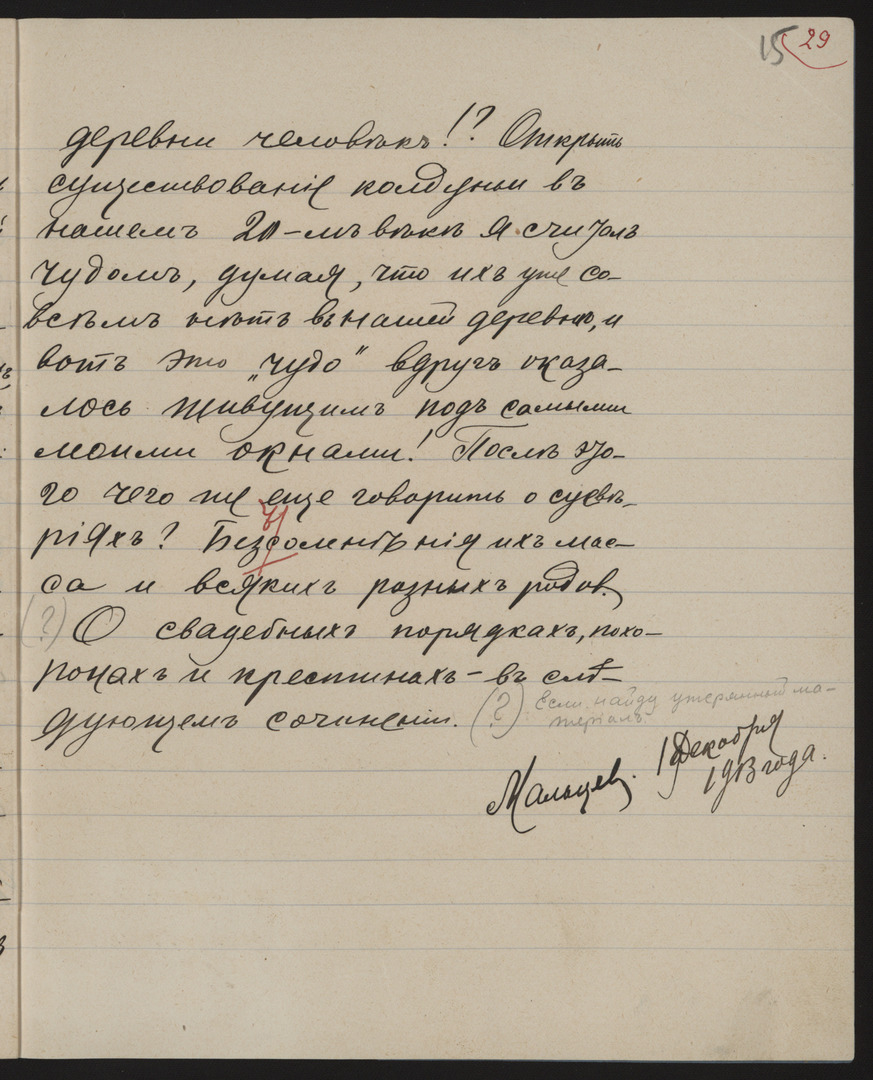 15 29
деревни человѣкъ!? Открыть
существованіе колдуньи въ
нашемъ 20-мъ вѣкѣ я считалъ
чудомъ, думая, что ихъ уже со-
всѣмъ нѣтъ въ нашей деревнѣ, и
вотъ это „чудо" вдругъ оказа-
лось живущимъ подъ самыми
моими окнами! Послѣ это-
го чего же еще говорить о суевѣ-
ріяхъ? Безсомнѣнія ихъ мас-
са и всякихъ разныхъ родов.
(?) О свадебныхъ порядкахъ, похо-
ронахъ и крестинахъ - въ слѣ-
дующемъ сочиненіи. (?) Если найду утерянный ма-
теріалъ
Мальцев. 1 Декабря
1913 года.